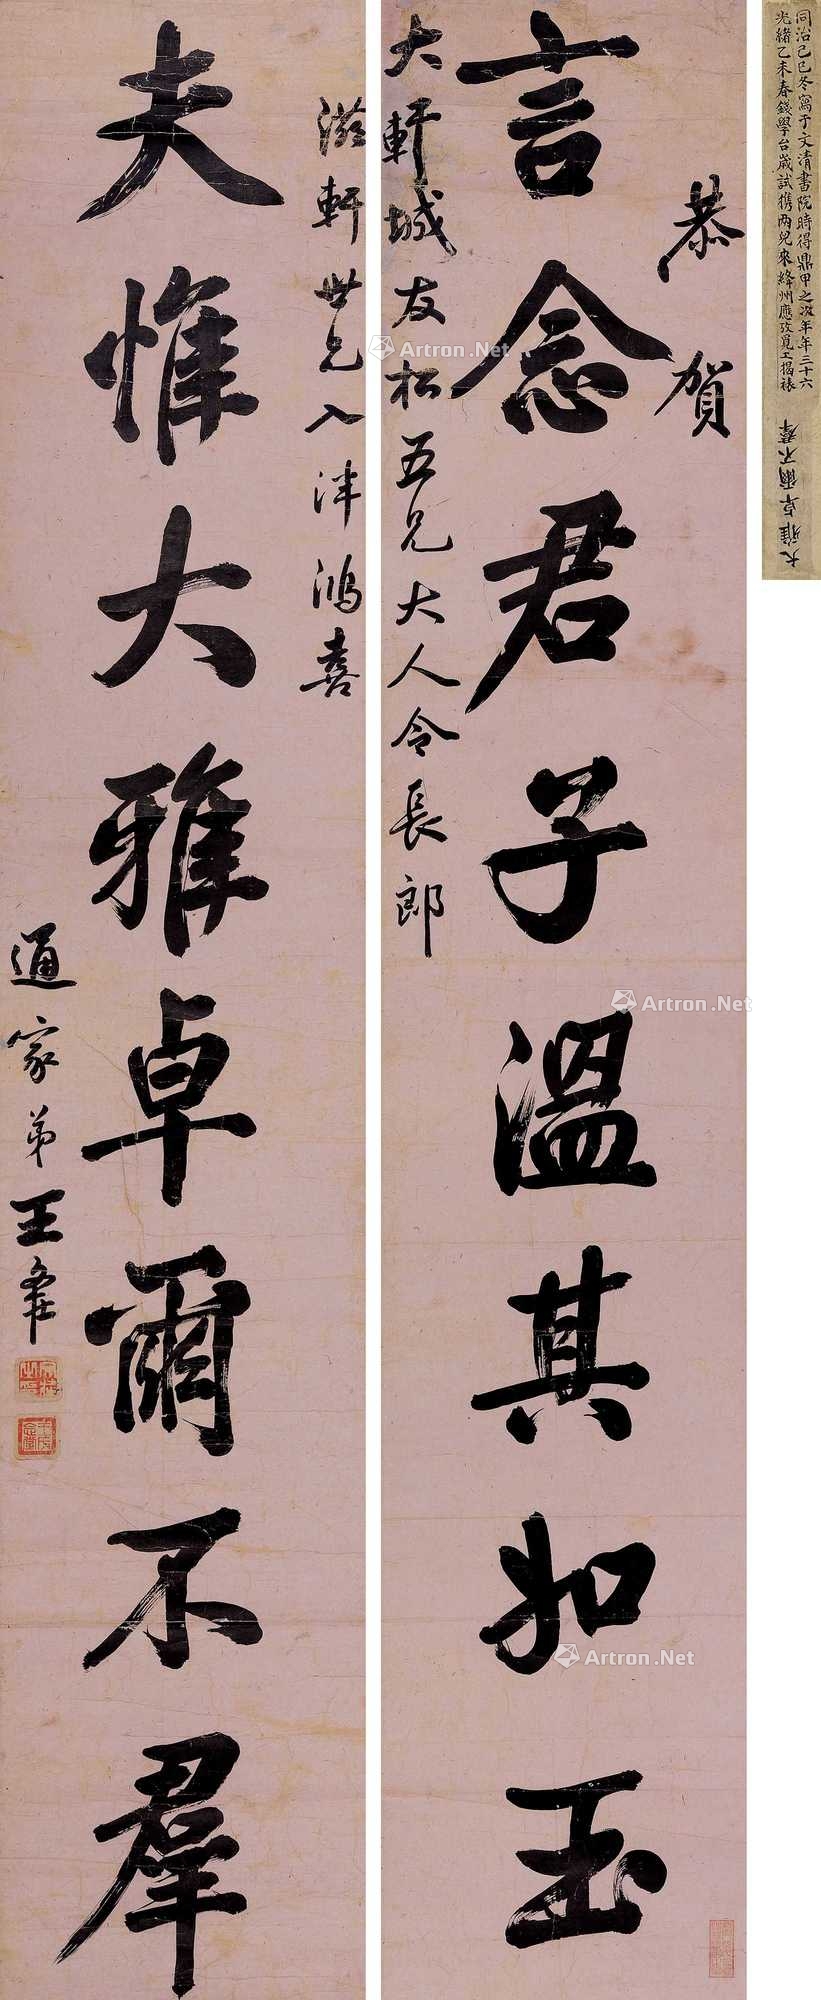 言念君子溫其如玉
恭賀
大軒城友松五兄大人令長郎
滋軒世兄入泮鴻喜
夫惟大雅卓爾不羣
通家弟王
同治己巳冬寫于文清書院時得鼎甲之次年年三十六
光緒乙未春錢學台歲試携兩兒來絳州應攷覓工揭裱
大雅卓爾不羣
Artron.Net
Artron.Net
Artron.Net